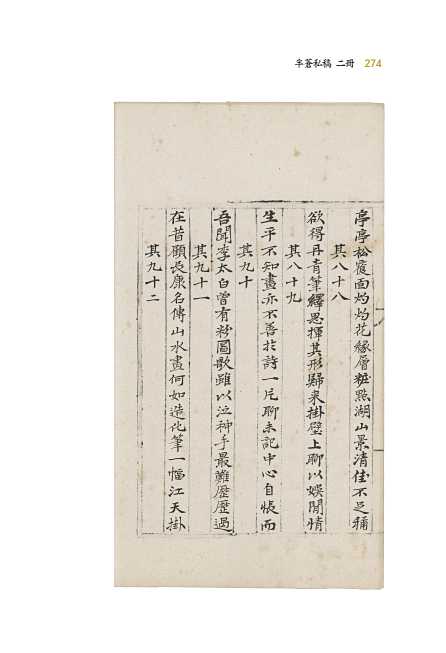 半蒼私稿 二冊 274
亭亭松覆面灼灼花緣層粧點湖山景清佳不足稱
其八十八
欲得丹青筆繹思揮其形歸来掛壁上聊以娛閒情
其八十九
生平不知畫亦不善於詩一片聊未記中心自悵而
其九十
吾聞李太白曾有粉圖歌雖以泣神手最難歷歷過
其九十一
在昔顧長康名傳山水畫何如造化筆一幅江天掛
其九十二